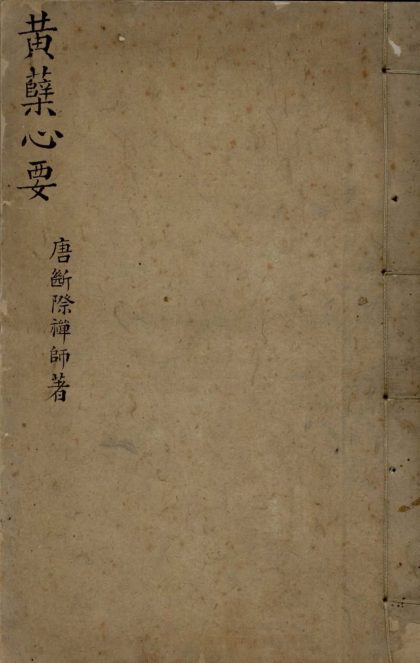 黃蘖心要
唐斷際禪師著